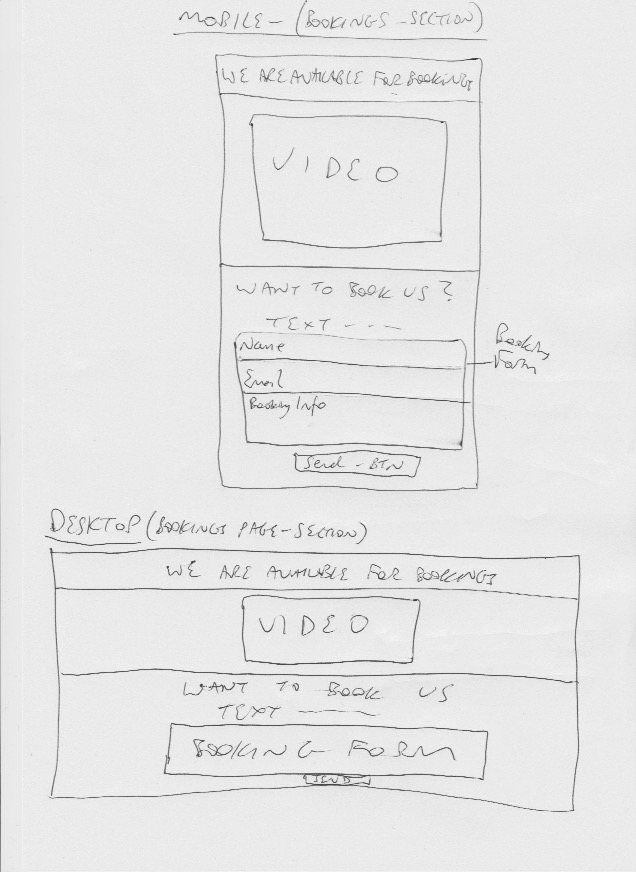 MOBILE - (BOOKINGS - SECTION)
WE ARE AVAILABLE FOR BOOKINGS
VIDEO
WANT TO BOOK US?
TEXT - - -
Name
Booking
Form
Email
Booking Info
Send - BTN
DESKTOP (BOOKINGS PAGE - SECTION)
WE ARE AVAILABLE FOR BOOKINGS
VIDEO
WANT TO BOOK US
TEXT - - -
BOOKING FORM
SEND